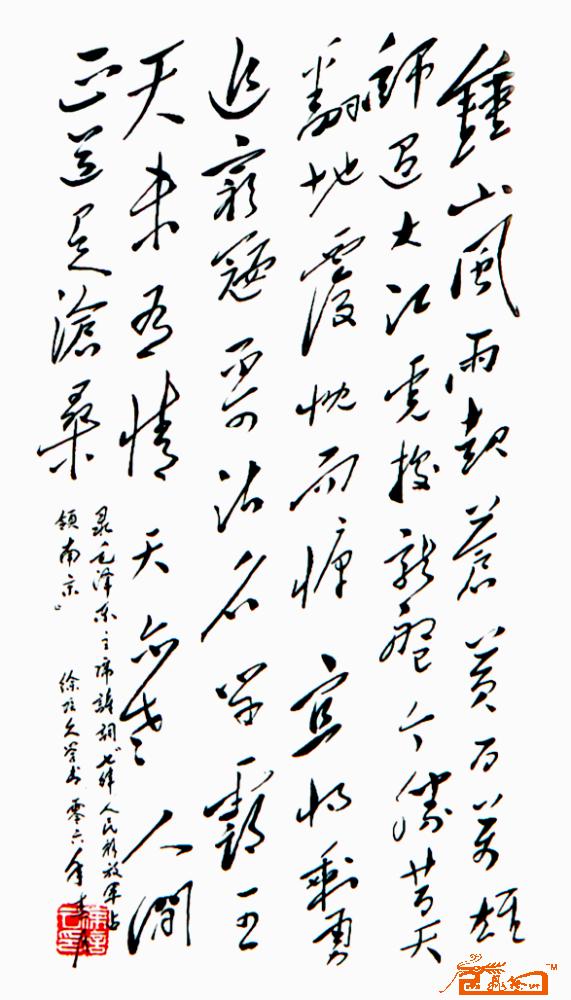 鍾山風雨起蒼黃百萬雄
師過大江虎據龍盤今勝昔天
翻地覆慨而慷宜將剩勇
追窮寇不可沽名學霸王
天未有情天亦老人間
正道是滄桑
录毛泽东主席詩詞七律人民解放軍占
領南京』
徐久学书零六年春月